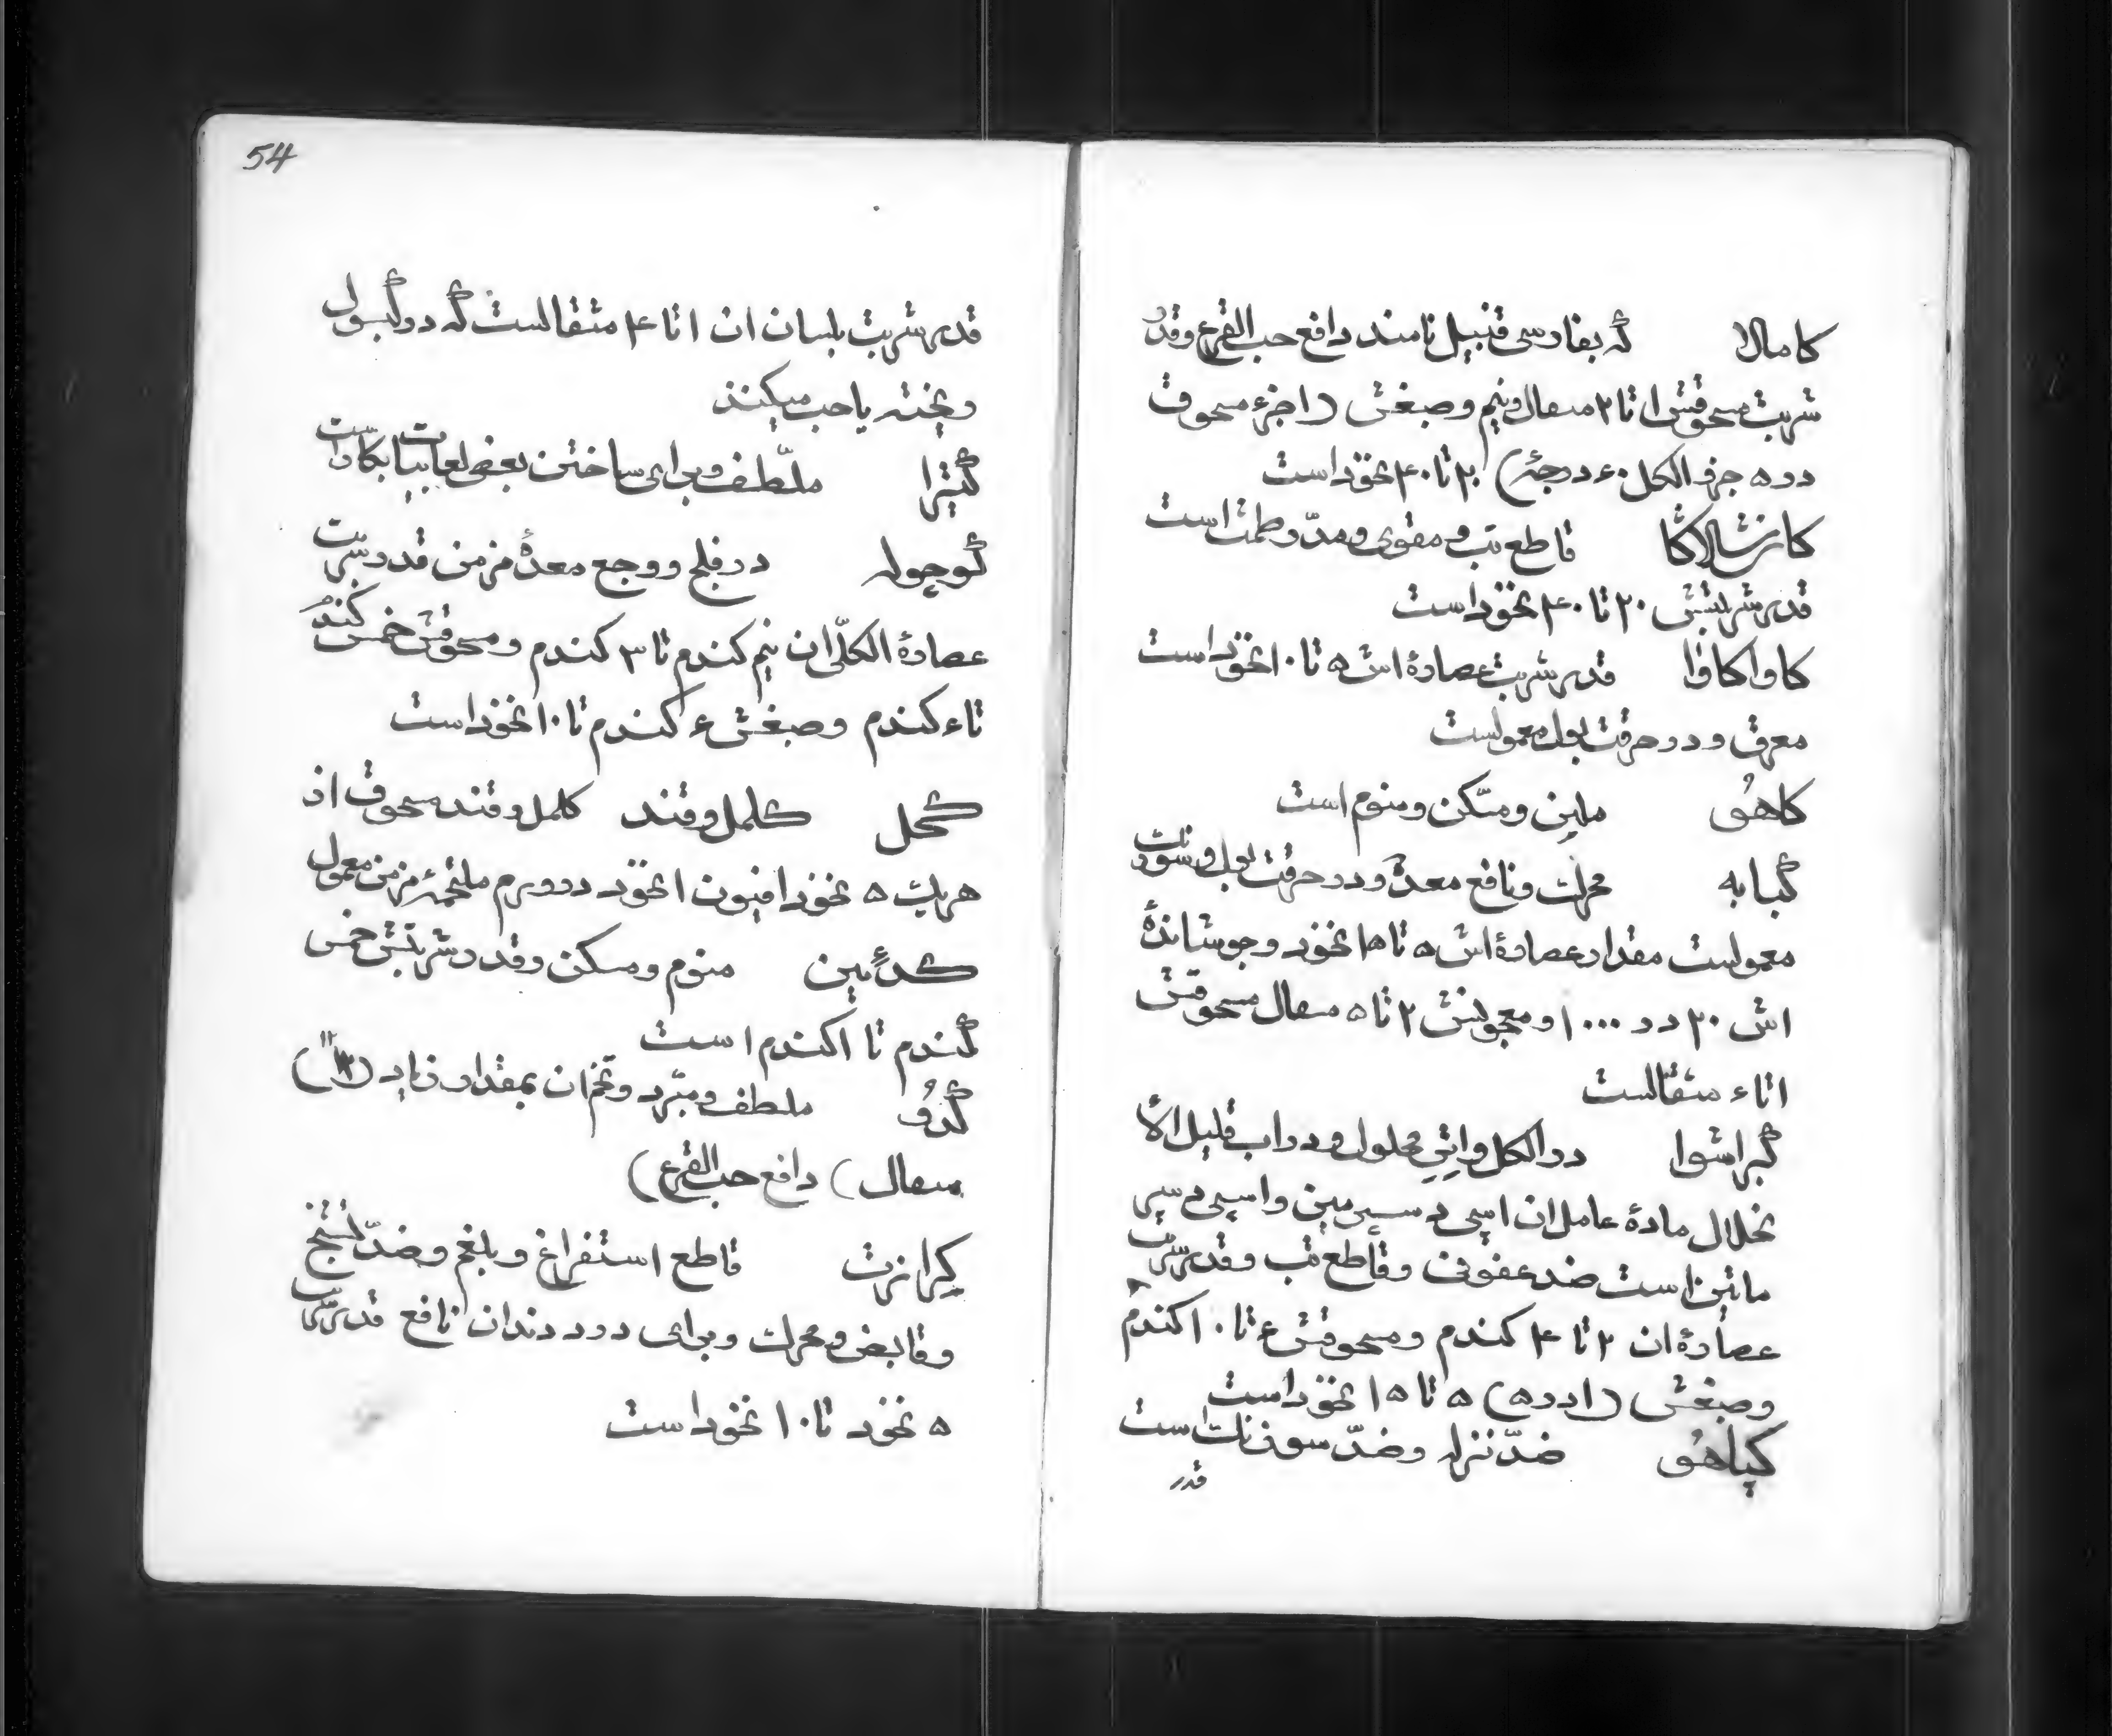 کامالا که بفارسی قنبیل نامند دافع حب القرع و قدر
شربت مسحوقش ۱ تا ۲ مثقال و نیم و صبغش (۱ جزء مسحوق
در ۵ جزء الکل ۶۰ درجه) ۲۰ تا ۴۰ نخود است
کانشالاگا قاطع تب و مقوی و مدّر طمث است
قدر شربتش ۲۰ تا ۴۰ نخود است
کاواکاوا قدر شربت عصارهٔ اش ۵ تا ۱۰ نخود است
معرق و در حرقت بول معمولست
کاهو ملین و مسّکن و منوم است
کبابه محرک و نافع معده و در حرقت بول و سوزنک
معمولست مقدار عصارهٔ اش ۵ تا ۱۵ نخود و جوشاندهٔ
اش ۲۰ در ۱۰۰۰ و معجونش ۲ تا ۵ مثقال مسحوقش
۱ تا ۶ مثقالست
کبراشوا در الکل و اتر محلول و در اب قلیل الا
نحلال مادهٔ عامل ان اسپی د سپرمین و اسپی د سپر
ماتین است ضد عفونی و قاطع تب و قدر شربت
عصارهٔ ان ۲ تا ۴ کندم و مسحوقش ۶ تا ۱۰ کندم
و صبغش (۱ در ۵) ۵ تا ۱۵ نخود است
کپاهو ضدّ نزله و ضدّ سوزنک است
قدر
54
قدر شربت بلسان ان ۱ تا ۴ مثقالست که در کپسول
ریخته یا حب میکنند
کتیرا ملّطف و برای ساختن بعض لعابیات بکار است
کوچوله در فلج و وجع معدهٔ مزمن قدر شربت
عصارهٔ الکلّی ان نیم کندم تا ۳ کندم و مسحوقش خمس کندم
تا ۶ کندم و صبغش ۶ کندم تا ۱۰ نخود است
کحل کلمل و قند کلمل و قند مسحوق از
هریک ۵ نخود افیون ۱ نخود در ورم ملتحمهٔ مزمن معمول
کدئین منوم و مسکن و قدر شربتش خمس
کندم تا ۱ کندم است
کدو ملطف و مبّرد و تخم ان بمقدار زیاد (۱۲
مثقال) دافع حب القرع)
کرازت قاطع استفراغ و بلغم و ضدّ تشنج
و قابض و محرک و برای درد دندان نافع قدر شربت
۵ نخود تا ۱۰ نخود است